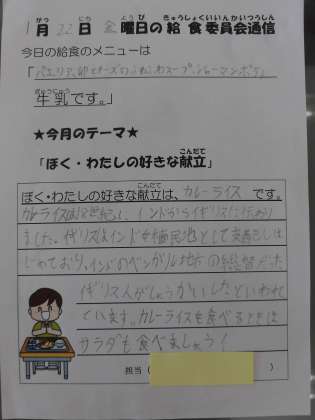 1月22日金曜日の給食委員会通信
今日の給食のメニューは
「パエリア、卵とチーズのふわふわスープ、ジャーマンポテ
牛乳です。」
★今月のテーマ★
「ぼく・わたしの好きな献立」
ぼく・わたしの好きな献立は、カレーライス です。
カレーライスは18世紀に、インドからイギリスに伝わり
ました。イギリスはインドを植民地として支配しは
じめており、インドのベンガル地方の総督だった
イギリス人がしょうかいしたといわれ
ています。カレーライスを食べるときは
サラダも食べましょう!
担当( )